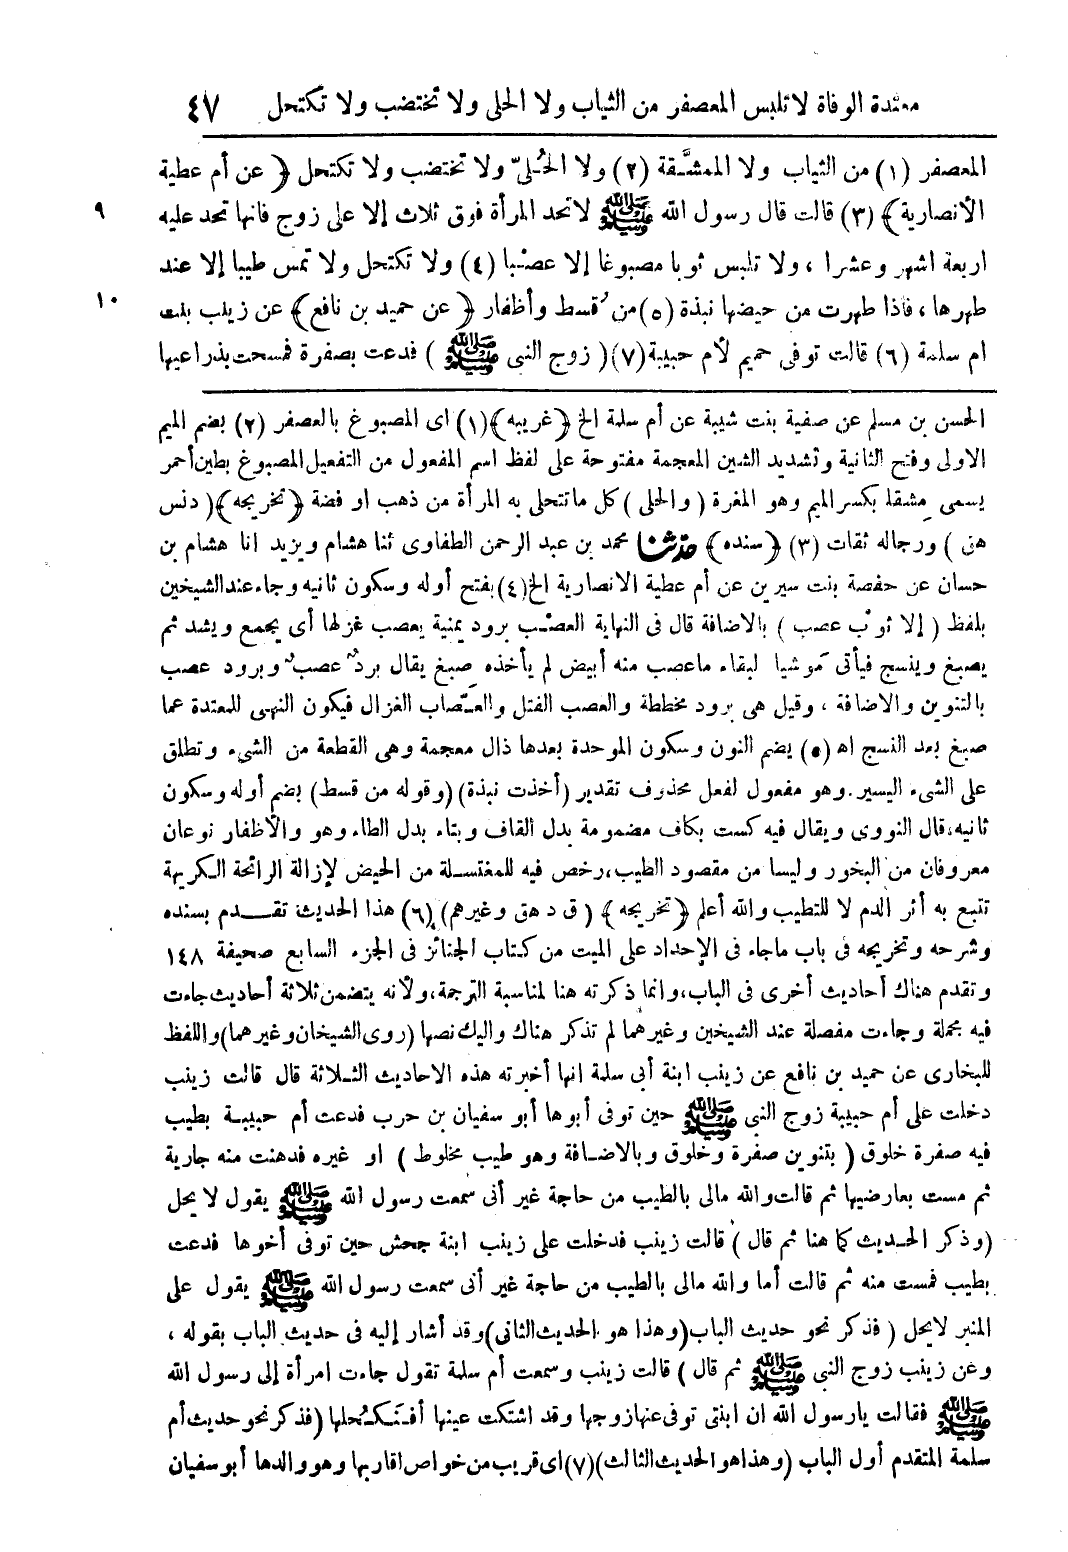 معتدة الوفاة لا تلبس المعصفر من الثياب ولا الحلى ولا تختضب ولا تكتحل ٤٧
المعصفر (١) من الثياب ولا الممشَّقة (٢) ولا الحُلىّ ولا تختضب ولا تكتحل ﴿ عن أم عطية
الأنصارية﴾ (٣) قالت قال رسول الله ﷺ لاتحد المرأة فوق ثلاث إلا على زوج فانها تحد عليه ٩
اربعة اشهر وعشرا ، ولا تلبس ثوبا مصبوغا إلا عصْبا (٤) ولا تكتحل ولا تمس طيبا إلا عند
طهرها ، فاذا طهرت من حيضها نبذة (٥) من قُسط وأظفار ﴿ عن حميد بن نافع﴾ عن زينب بنت ١٠
ام سلمة (٦) قالت توفى حميم لأم حبيبة (٧) ( زوج النبى ﷺ ) فدعت بصفرة فمسحت بذراعيها
الحسن بن مسلم عن صفية بنت شيبة عن أم سلمة الخ ﴿غريبه﴾ (١) اى المصبوغ بالعصفر (٢) بضم الميم
الاولى وفتح الثانية وتشديد الشين المعجمة مفتوحة على لفظ اسم المفعول من التفعيل المصبوغ بطين أحمر
يسمى مِشقا بكسر الميم وهو المغرة ( والحلى ) كل ماتتحلى به المرأة من ذهب او فضة ﴿تخريجه﴾ ( د نس
هق ) ورجاله ثقات (٣) ﴿سنده﴾ حدثنا محمد بن عبد الرحمن الطفاوى ثنا هشام ويزيد انا هشام بن
حسان عن حفصة بنت سيرين عن أم عطية الانصارية الخ (٤) بفتح أوله وسكون ثانيه وجاء عند الشيخين
بلفظ ( إلا ثوب عصب ) بالاضافة قال فى النهاية العصْب برود يمنية يعصب غزلها أى يجمع ويشد ثم
يصبغ وينسج فيأتى مَوشيا لبقاء ماعصب منه أبيض لم يأخذه صبغ يقال بردٌ عصبٌ وبرود عصب
بالتنوين والاضافة ، وقيل هى برود مخططة والعصب الفتل والعَصّاب الغزال فيكون النهى للمعتدة عما
صبغ بعد النسج اه (٥) بضم النون وسكون الموحدة بعدها ذال معجمة وهى القطعة من الشىء وتطلق
على الشىء اليسير. وهو مفعول لفعل محذوف تقدير (أخذت نبذة) (وقوله من قسط) بضم أوله وسكون
ثانيه، قال النووى ويقال فيه كست بكاف مضمومة بدل القاف وبتاء بدل الطاء وهو والأظفار نوعان
معروفان من البخور وليسا من مقصود الطيب، رخص فيه للمغتسلة من الحيض لإزالة الرائحة الكريهة
تتبع به أثر الدم لا للتطيب والله أعلم ﴿تخريجه﴾ ( ق د هق وغيرهم) (٦) هذا الحديث تقدم بسنده
وشرحه وتخريجه فى باب ماجاء فى الإحداد على الميت من كتاب الجنائز فى الجزء السابع صحيفة ١٤٨
وتقدم هناك أحاديث أخرى فى الباب، وانما ذكرته هنا لمناسبة الترجمة، ولأنه يتضمن ثلاثة أحاديث جاءت
فيه مجملة وجاءت مفصلة عند الشيخين وغيرهما لم تذكر هناك واليك نصها (روى الشيخان وغيرهما) واللفظ
للبخارى عن حميد بن نافع عن زينب ابنة أبى سلمة انها أخبرته هذه الاحاديث الثلاثة قال قالت زينب
دخلت على أم حبيبة زوج النبى ﷺ حين توفى أبوها أبو سفيان بن حرب فدعت أم حبيبة بطيب
فيه صفرة خلوق ( بتنوين صفرة وخلوق وبالاضافة وهو طيب مخلوط ) او غيره فدهنت منه جارية
ثم مست بعارضيها ثم قالت والله مالى بالطيب من حاجة غير أنى سمعت رسول الله ﷺ يقول لا يحل
(وذكر الحديث كما هنا ثم قال ) قالت زينب فدخلت على زينب ابنة جحش حين توفى أخوها فدعت
بطيب فمست منه ثم قالت أما والله مالى بالطيب من حاجة غير أنى سمعت رسول الله ﷺ يقول على
المنبر لايحل ( فذكر نحو حديث الباب (وهذا هو الحديث الثانى) وقد أشار إليه فى حديث الباب بقوله ،
وعن زينب زوج النبى ﷺ ثم قال ) قالت زينب وسمعت أم سلمة تقول جاءت امرأة إلى رسول الله
ﷺ فقالت يارسول الله ان ابنتى توفى عنها زوجها وقد اشتكت عينها أفنَكحُلها (فذكر نحو حديث أم
سلمة المتقدم أول الباب (وهذا هو الحديث الثالث) (٧) اى قريب من خواص اقاربها وهو والدها أبو سفيان